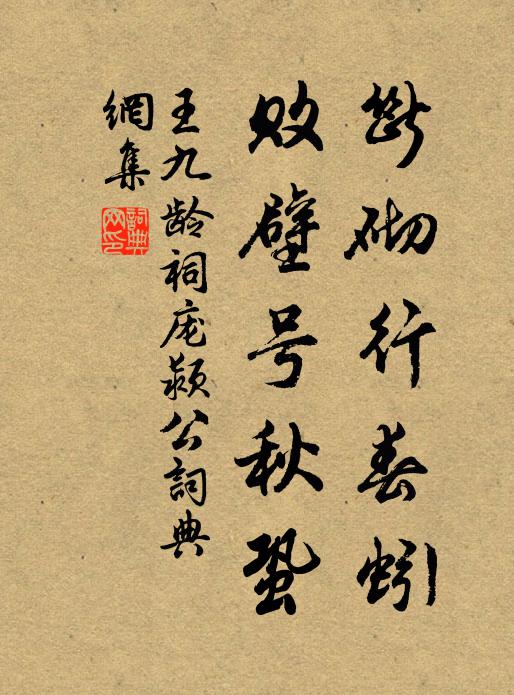 断砌行春蚓
败壁号秋蛩
王九龄祠庞颖公词典
网集
词典网印